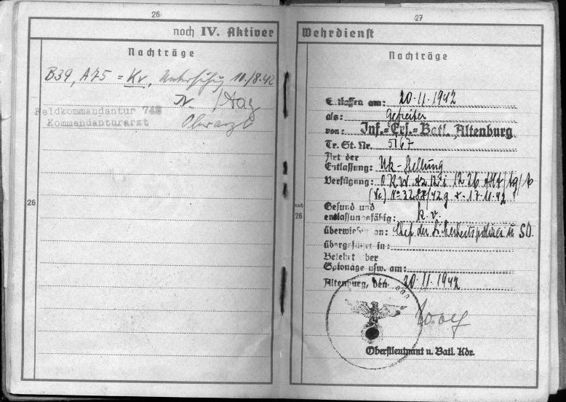 26
noch IV. Aktiver
Nachträge
B39, A75 = Kv, Untersuchung 10/8.42
Feldkommandantur 748
Kommandanturarzt
Oberarzt
26
27
Wehrdienst
Nachträge
Entlassen am: 20.11.1942
als: Gefreiter
von: Inf.=Ers.=Batl. Altenburg
Tr. St. Nr. 5167
Art der
Entlassung: Uk-Stellung
Verfügung: O.K.W. Az.
Gesund und
entlassungsfähig: k.v.
überwiesen an: Chef der Sicherheitspolizei u SD.
übergeführt in:
Belehrt der
Spionage usw. am:
Altenburg, den 20.11.1942
Oberstleutnant u. Batl. Kdr.
26